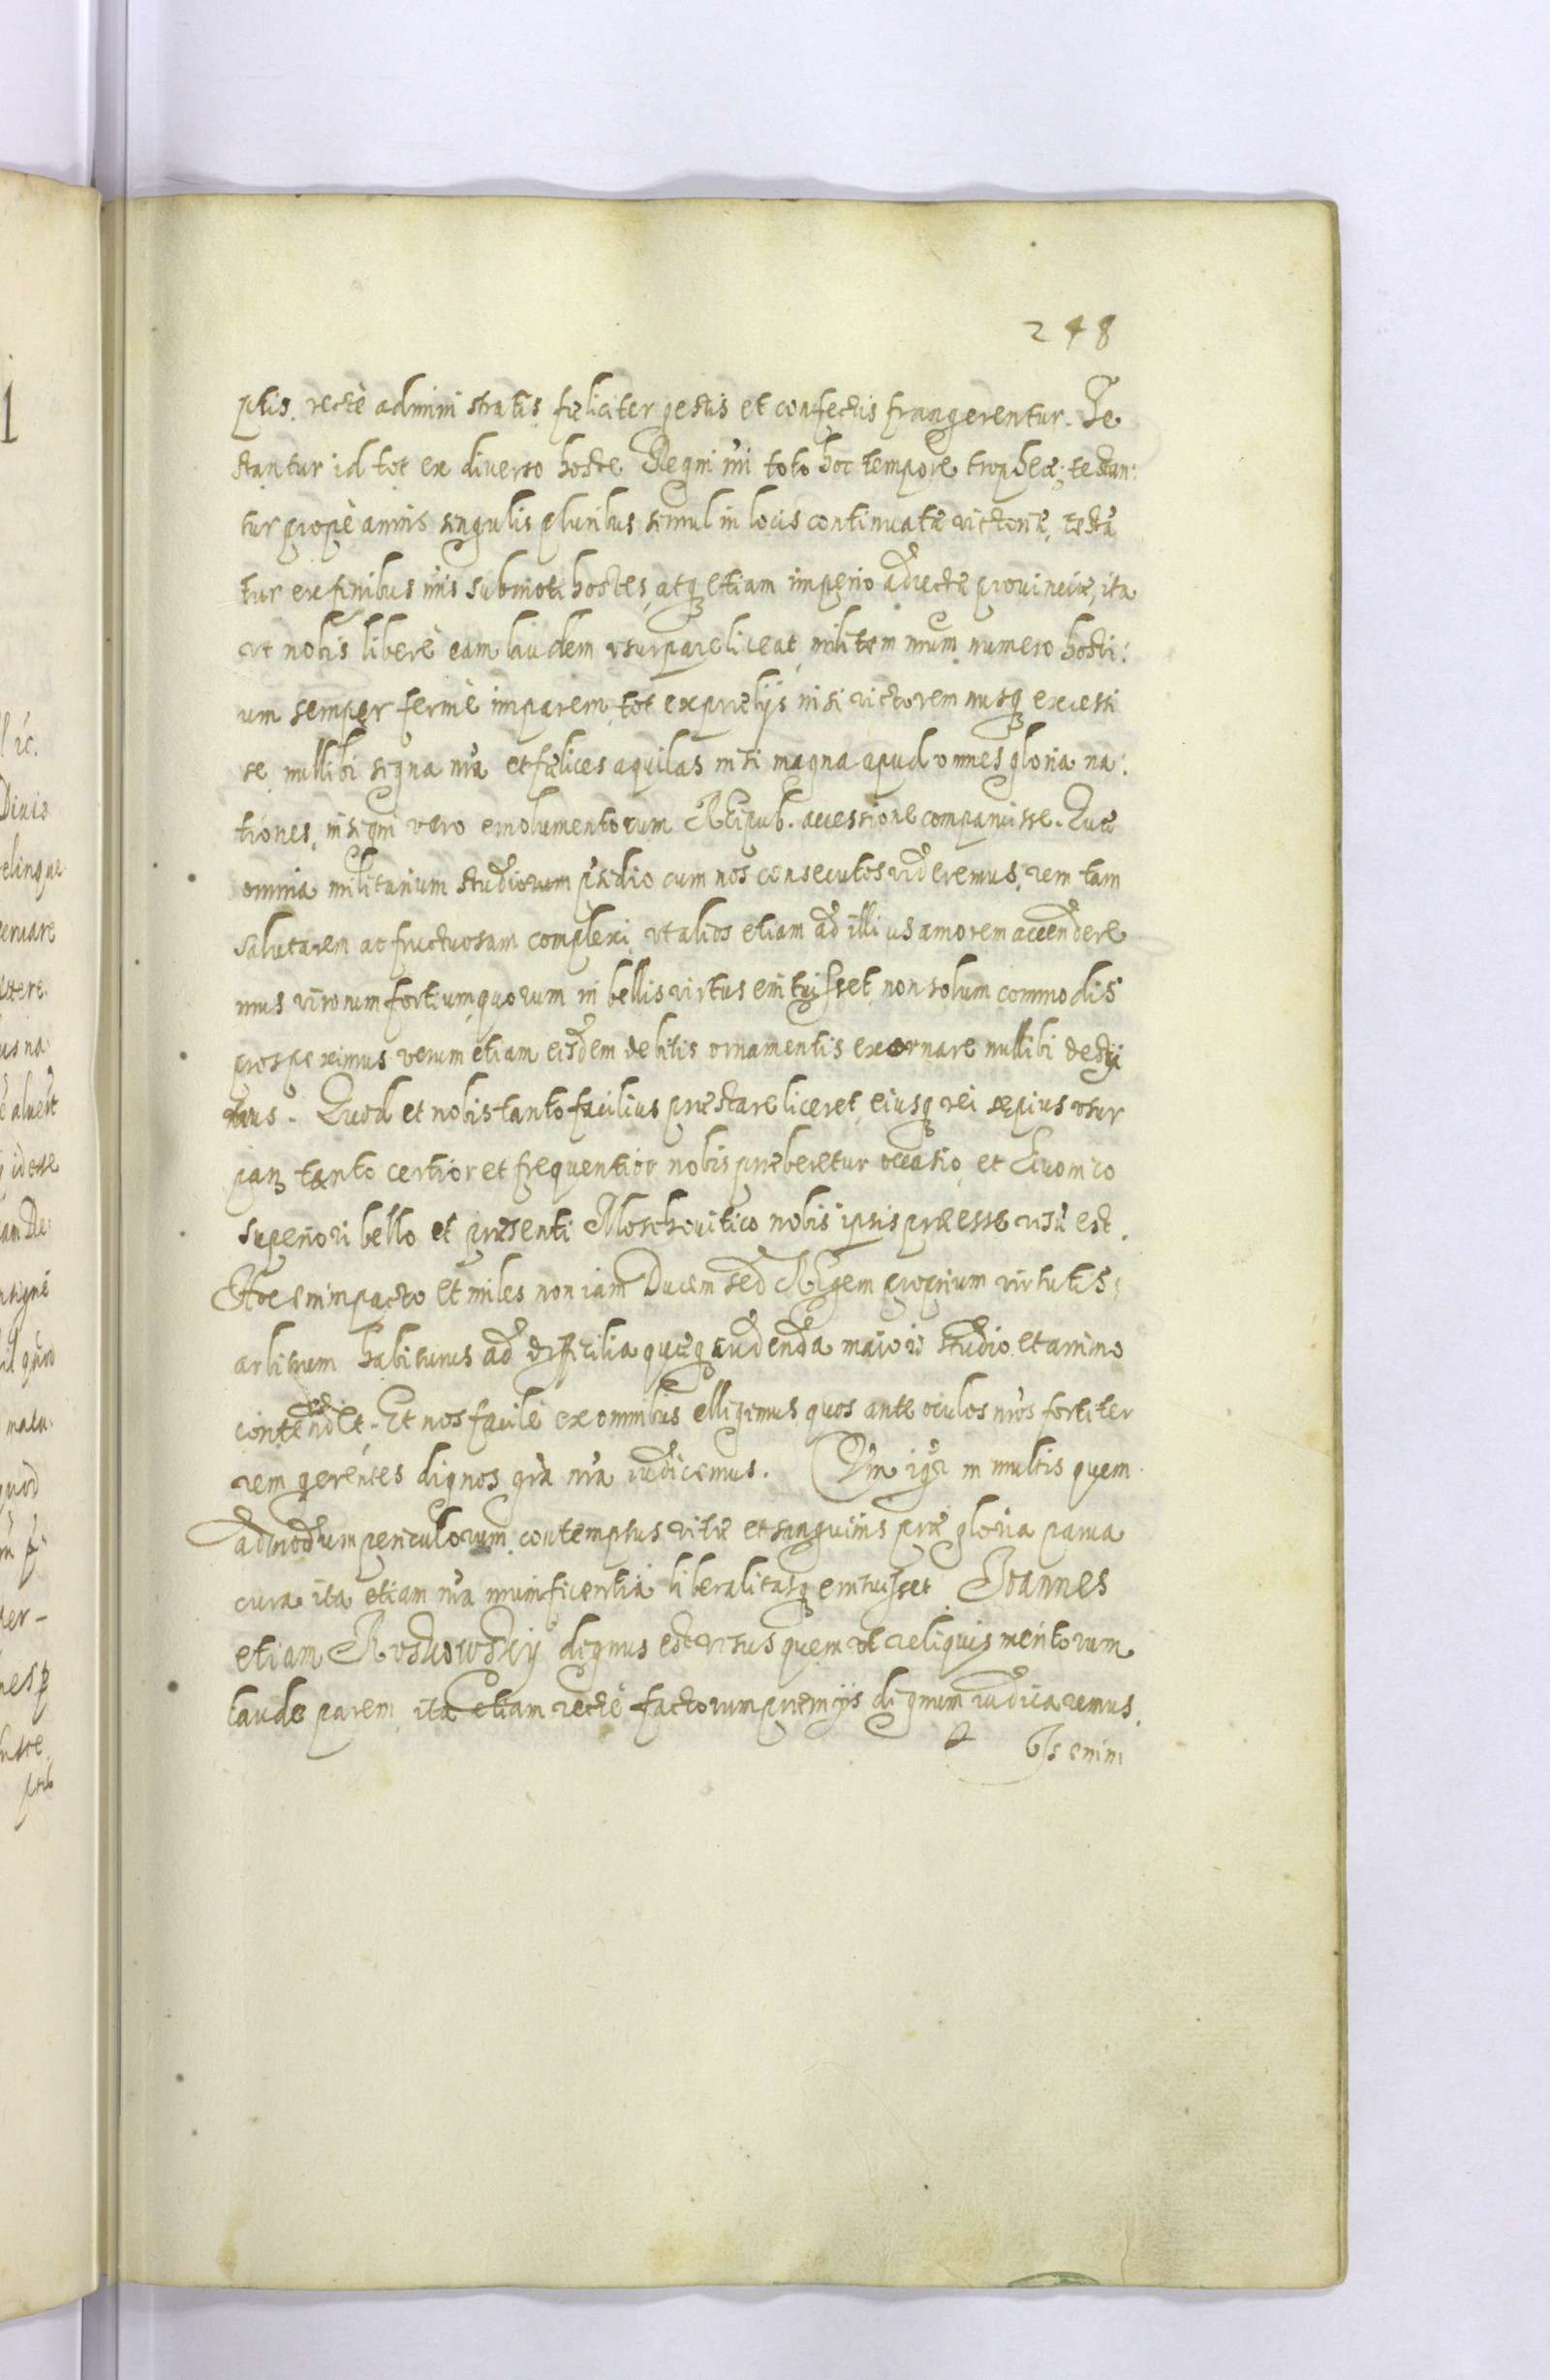 248
ptis, rectè administratis, fæliciter gestis et confectis frangerentur. Te
stantur id tot ex diverso hoste Regni nri toto hoc tempore trophea; testan:
tur propè annis singulis pluribus simul in locis continuatæ victoriæ, testã
tur ex finibus nris submoti hostes, atq etiam imperio adiectæ provinciæ, ita
ut nobis liberè eam laudem usurpare liceat, militem nrum numero hosti:
um semper fermè imparem, tot ex prælijs nisi victorem nusq excessi
se, nullibi signa nra et fælices aquilas nisi magna apud omnes gloria na:
tiones, insigni vero emolumentorum Reipub. accessione comparuisse. Quæ
omnia militarium studiorum præsidio cum nos consecutos videremus, rem tam
salutarem ac fructuosam complexi, ut alios etiam ad illius amorem accendere
mus virorum fortium, quorum in bellis virtus enituisset, non solum commodis
prospeximus verum etiam eisdem debitis ornamentis exornare nullibi destit
imus. Quod et nobis tanto facilius præstare liceret, eiusq rei sæpius usur
pan tanto certior et frequentior nobis præberetur occasio, et Livonico
superiori bello et præsenti Moschovitico nobis ipsis præesse visũ est.
Hoc enim pacto et miles non iam Ducem sed Regem proprium virtutis
arbitrum habiturus ad difficilia quæq audenda maiori studio et animo
contendet. Et nos facilè ex omnibus elligemus quos ante oculos nros fortiter
rem gerentes dignos gra nra iudicemus. Dum igr in multis quem
admodum periculorum contemptus vitæ et sanguinis præ gloria parva
cura ita etiam nra munificentia liberalitasq enituisset Joannes
etiam Roskowskij dignus est visus quem ut reliquis meritorum
laude parem, ita etiam rectè factorum præmijs dignum iudicaremus.
Is enim